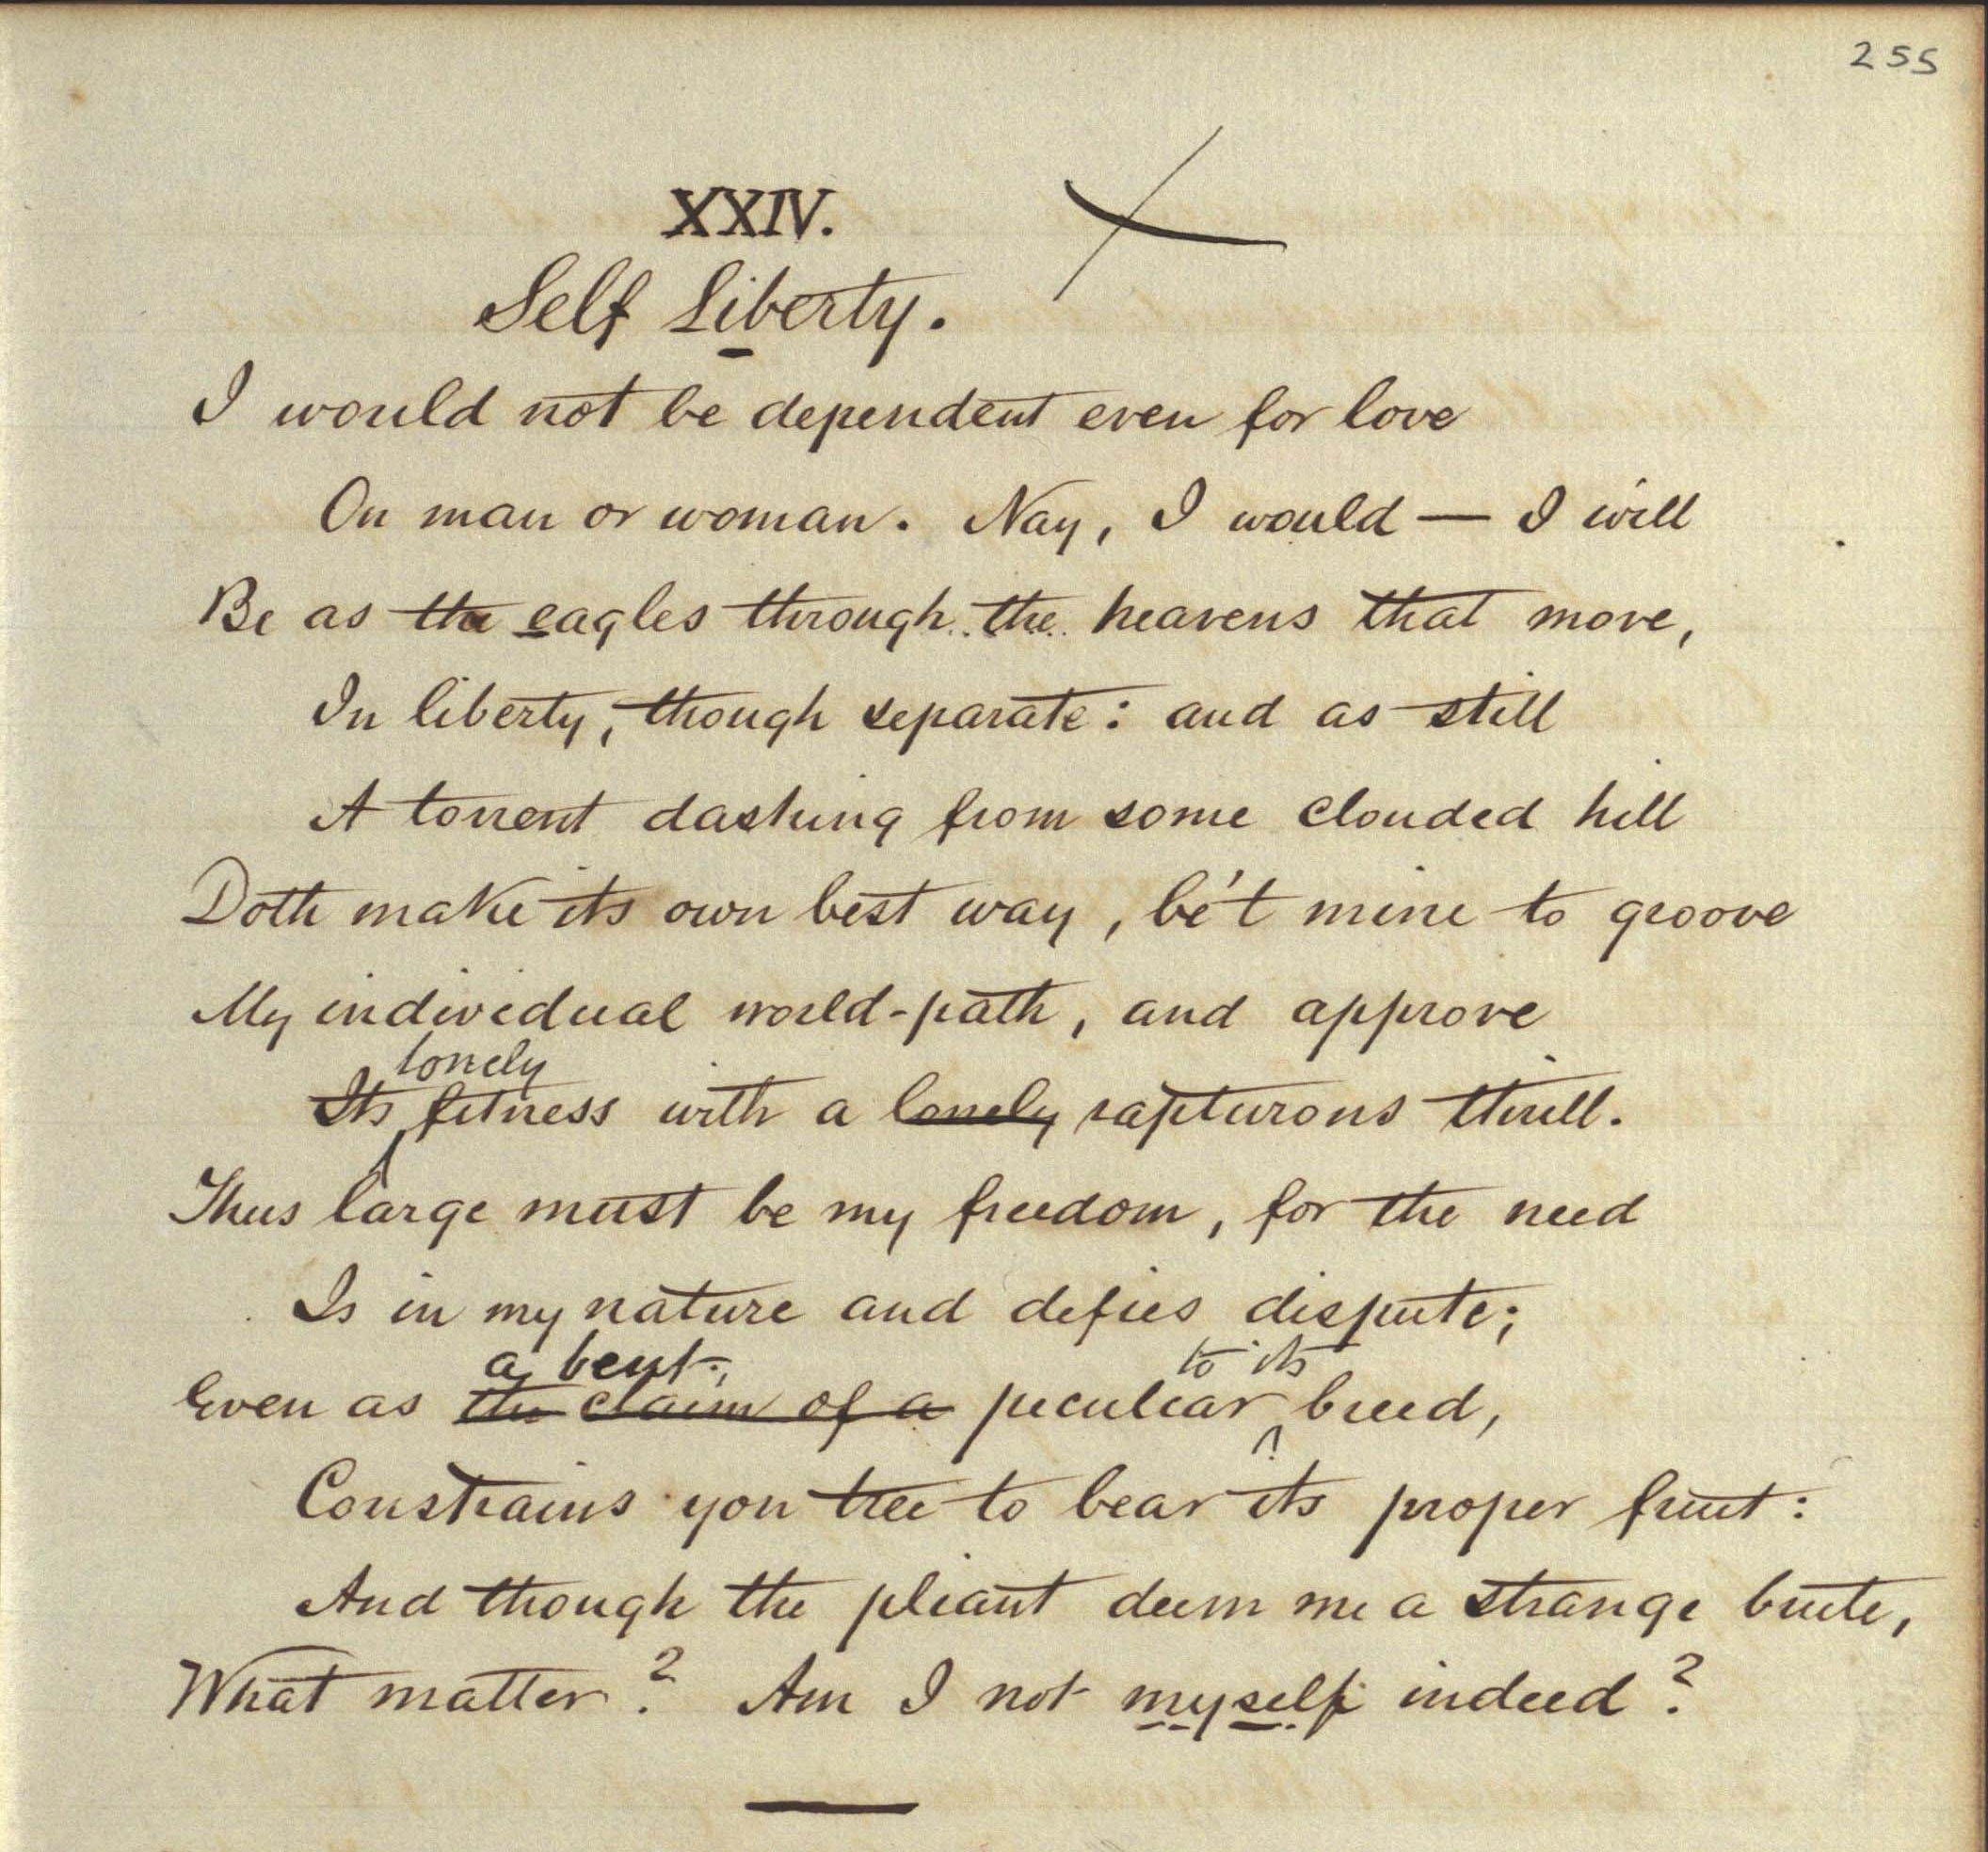 255
XXIV.
Self Liberty.
I would not be dependent even for love
On man or woman. Nay, I would — I will
Be as the eagles through the heavens that move,
In liberty, though separate: and as still
A torrent dashing from some clouded hill
Doth make its own best way, be't mine to groove
My individual world-path, and approve
lonely
Its fitness with a lonely rapturous thrill.
Thus large must be my freedom, for the need
Is in my nature and defies dispute;
a bent, to its
Even as the claim of a peculiar breed,
Constrains yon tree to bear its proper fruit:
And though the pliant deem me a strange brute,
What matter? Am I not myself indeed?